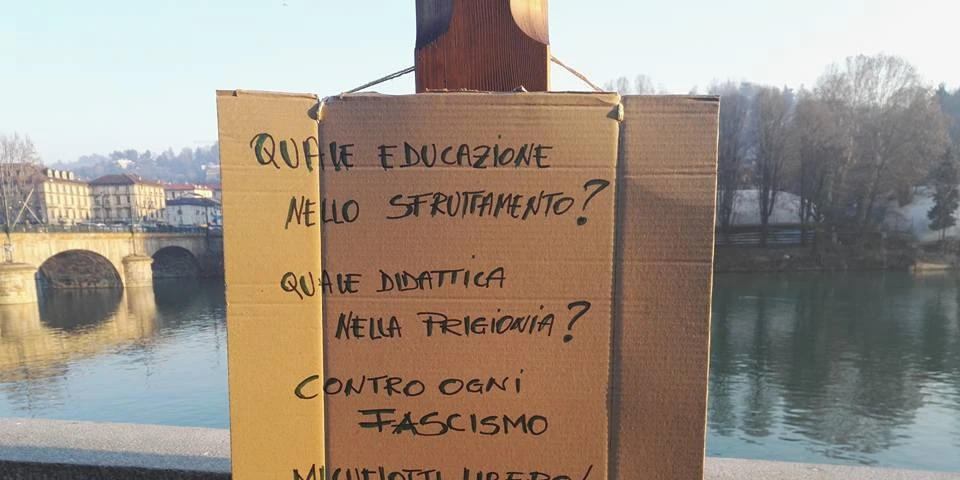 QUALE EDUCAZIONE
NELLO SFRUTTAMENTO?
QUALE DIDATTICA
NELLA PRIGIONIA?
CONTRO OGNI
FASCISMO
MICHELOTTI LIBERO!